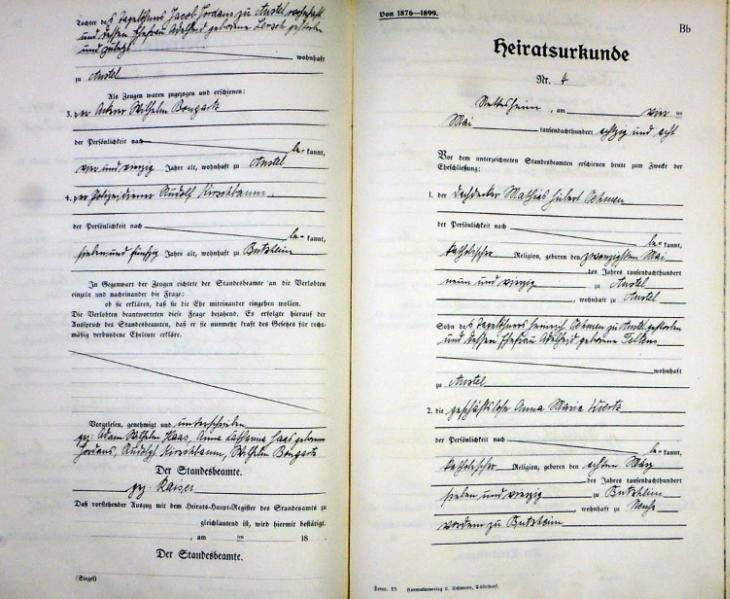 Tochter des Tagelöhners Jacob Jordans zu Anstel wohnhaft
und dessen Ehefrau Adelheid geborene Lersch gestorben
und zuletzt
wohnhaft
zu Anstel
Als Zeugen waren zugezogen und erschienen:
3. der Ackerer Wilhelm Bongartz
der Persönlichkeit nach be-kannt,
vier und vierzig Jahre alt, wohnhaft zu Anstel
4. der Polizeidiener Rudolf Kirschbaum,
der Persönlichkeit nach be-kannt,
sieben und fünfzig Jahre alt, wohnhaft zu Butzheim
In Gegenwart der Zeugen richtete der Standesbeamte an die Verlobten
einzeln und nacheinander die Frage:
ob sie erklären, daß sie die Ehe miteinander eingehen wollen.
Die Verlobten beantworteten diese Frage bejahend. Es erfolgte hierauf der
Ausspruch des Standesbeamten, daß er sie nunmehr kraft des Gesetzes für recht-
mäßig verbundene Eheleute erkläre.
Vorgelesen, genehmigt und unterschrieben
gez: Adam Wilhelm Haas, Anna Catharina Haas geborene
Jordans, Rudolf Kirschbaum, Wilhelm Bongartz
Der Standesbeamte.
gez. Kaiser
Daß vorstehender Auszug mit dem Heirats-Haupt-Register des Standesamts zu
gleichlautend ist, wird hiermit bestätigt.
, am ten 18
Der Standesbeamte.
(Siegel)
Von 1876—1899.
Bb
Heiratsurkunde
Nr. 4
Nettesheim, am vier ten
Mai tausendachthundert achtzig und acht
Vor dem unterzeichneten Standesbeamten erschienen heute zum Zwecke der
Eheschließung:
1. der Dachdecker Mathias Hubert Oehmen
der Persönlichkeit nach be-kannt,
katholischer Religion, geboren den zwanzigsten Mai
des Jahres tausendachthundert
neun und vierzig zu Anstel
, wohnhaft zu Anstel
Sohn des Tagelöhners Heinrich Oehmen zu Anstel gestorben
und dessen Ehefrau Adelheid geborene
wohnhaft
zu Anstel
2. die geschäftslose Anna Maria
der Persönlichkeit nach be-kannt,
katholischer Religion, geboren den achten März
des Jahres tausendachthundert
sieben und vierzig zu Butzheim
wohnhaft zu Neuss
vordem zu Butzheim
Form. 25 Formularverlag L. Schwann, Düsseldorf.